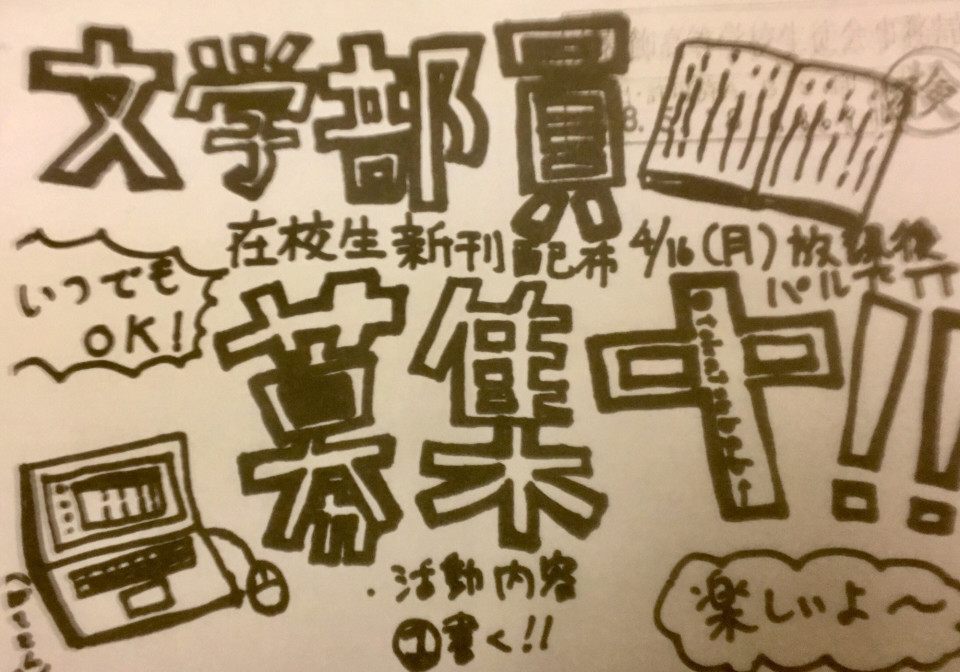 文学部員
在校生新刊配布 4/16(月)放課後
パルティ
いつでも
OK!
募集中!!
・活動内容
①書く!!
楽しいよ〜